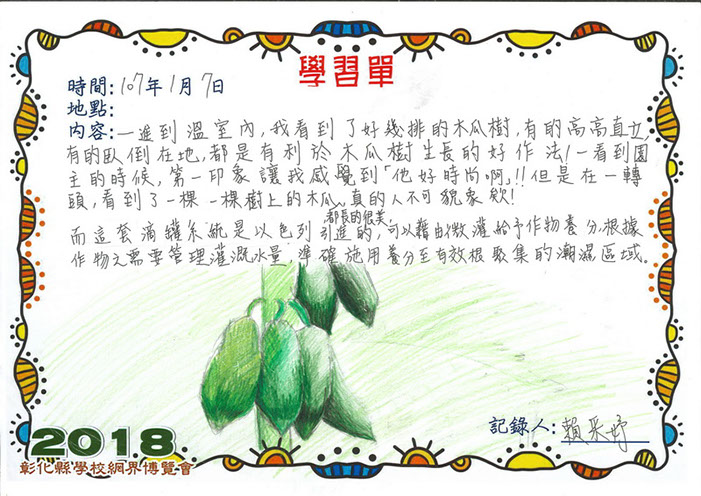 學習單
時間:107年1月7日
地點:
內容:一進到溫室內,我看到了好幾排的木瓜樹,有的高高直立,
有的臥倒在地,都是有利於木瓜樹生長的好作法!一看到園
主的時候,第一印象讓我感覺到「他好時尚啊」!!但是在一轉
頭,看到了一棵一棵樹上的木瓜都長的很美,真的人不可貌象欸!
而這套滴罐系統是以色列引進的,可以藉由微灌給予作物養分,根據
作物之需要管理灌溉水量,準確施用養分至有效根聚集的潮濕區域。
記錄人:賴采妤
2018
彰化縣學校網界博覽會